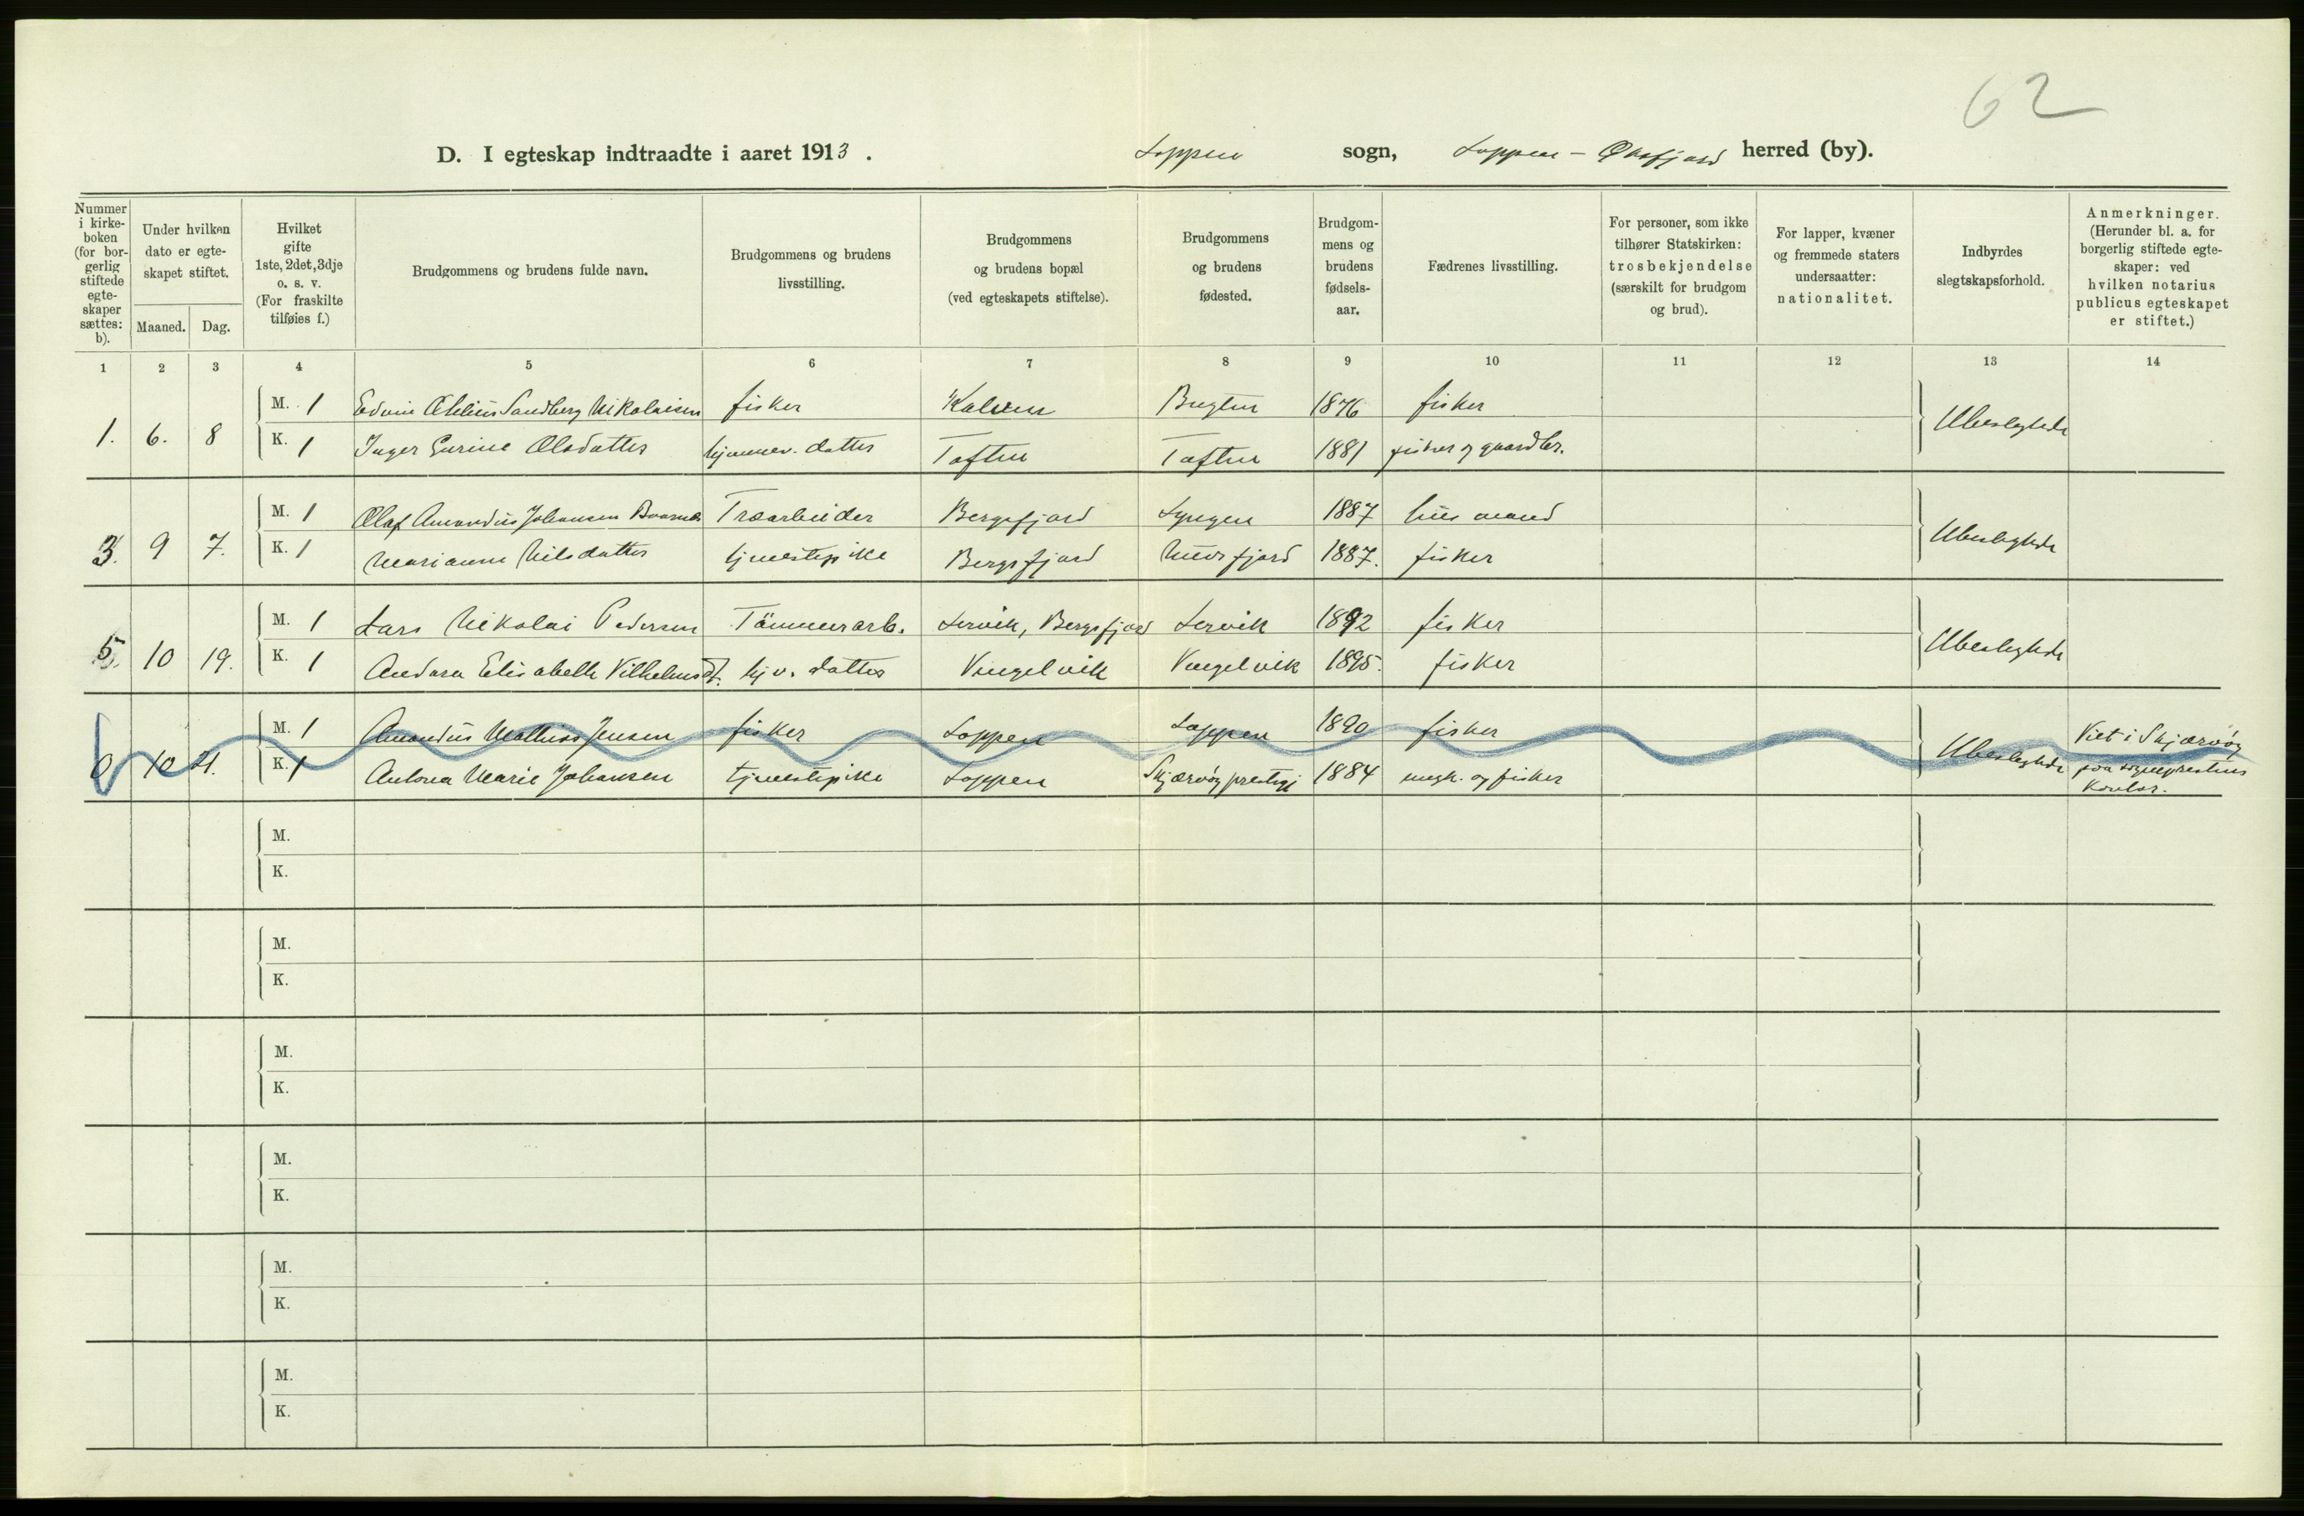 62
D. I egteskap indtraadte i aaret 1913. Loppen sogn, Loppen - Øksfjord herred (by).
Nummer i kirke- boken (for bor- gerlig stiftede egte- skaper sættes: b).
Under hvilken dato er egte- skapet stiftet.
Maaned. Dag.
Hvilket gifte 1ste, 2det, 3dje o. s. v. (For fraskilte tilføies f.)
Brudgommens og brudens fulde navn.
Brudgommens og brudens livsstilling.
Brudgommens og brudens bopæl (ved egteskapets stiftelse).
Brudgommens og brudens fødested.
Brudgom- mens og brudens fødsels- aar.
Fædrenes livsstilling.
For personer, som ikke tilhører Statskirken: trosbekjendelse (særskilt for brudgom og brud).
For lapper, kvæner og fremmede staters undersaatter: nationalitet.
Indbyrdes slegtskapsforhold.
Anmerkninger. (Herunder bl. a. for borgerlig stiftede egte- skaper: ved hvilken notarius publicus egteskapet er stiftet.)
1 2 3 4 5 6 7 8 9 10 11 12 13 14
M. 1 Edvin Sandberg Nikolaisen fisker Kalven Bugten 1876 fisker
1. 6. 8 Ubeslegtede
K. 1 Inger Olsdatter hjemmev. datter Toften Toften 1881 fisker og gaardbr.
M. 1 Olaf Amandus Johansen Træarbeider Bergsfjord Lyngen 1887 husmand
3. 9 7. Ubeslegtede
K. 1 Marianne Nilsdatter tjenestepike Bergsfjord fjord 1887. fisker
M. 1 Lars Nikolai Pedersen Tömmerarb. Lervik, Bergsfjord Lervik 1892 fisker
5. 10 19. Ubeslegtede
K. 1 Andora Elisabeth Vilhelmsdt. hjv. datter Vingelvik Vingelvik 1895. fisker
M. 1 Amandus Mathias Jensen fisker Loppen Loppen 1890 fisker
0 10 21. Ubeslegtede Viet i Skjærvöy paa sogneprestens Kontor.
K. 1 Antona Marie Johansen tjenestepike Loppen Skjærvöy prestegj 1884 ungk. og fisker
M.
K.
M.
K.
M.
K.
M.
K.
M.
K.
M.
K.